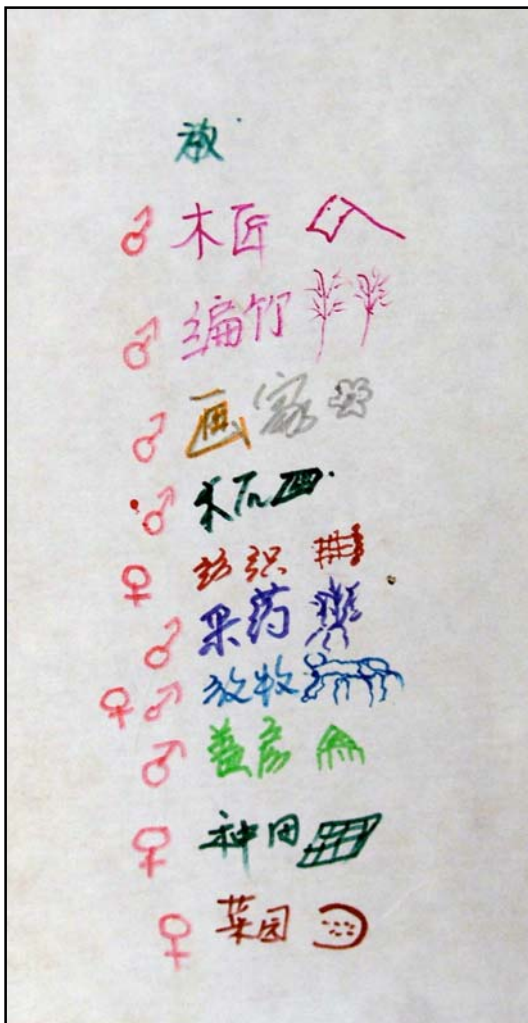 ♂ 木匠
♂ 编竹
♂ 画家
♂ 木
♀ 纺织
♂ 采药
♀♂ 放牧
♂ 盖房
♀ 种田
♀ 菜园